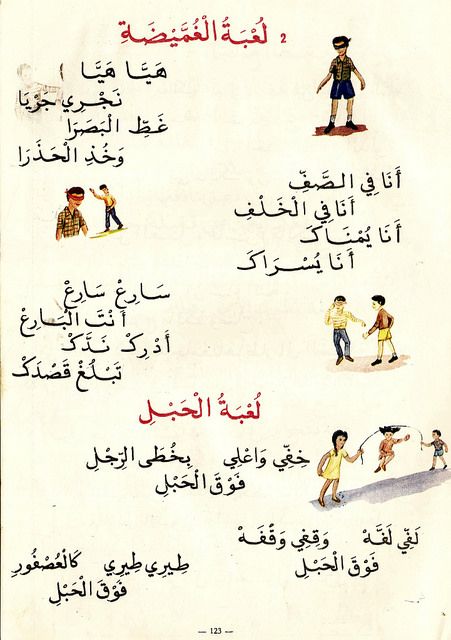 2 لُعْبَةُ الْغُمَّيْضَةِ
هَيَّا هَيَّا
نَجْرِي جَرْيَا
غَطِّ الْبَصَرَا
وَخُذِ الْحَذَرَا
أَنَا فِي الصَّفِّ
أَنَا فِي الْخَلْفِ
أَنَا يُمْنَاكَ
أَنَا يُسْرَاكَ
سَارِعْ سَارِعْ
أَنْتَ الْبَارِعْ
أَدْرِكْ نَدَّكْ
تَبْلُغْ قَصْدَكْ
لُعْبَةُ الْحَبْلِ
خِفِّي وَاعْلِي بِخُطَى الرِّجْلِ
فَوْقَ الْحَبْلِ
لَفِّي لَفَّهْ وَقِفِي وَقْفَهْ
فَوْقَ الْحَبْلِ
طِيرِي طِيرِي كَالْعُصْفُورِ
فَوْقَ الْحَبْلِ
— 123 —